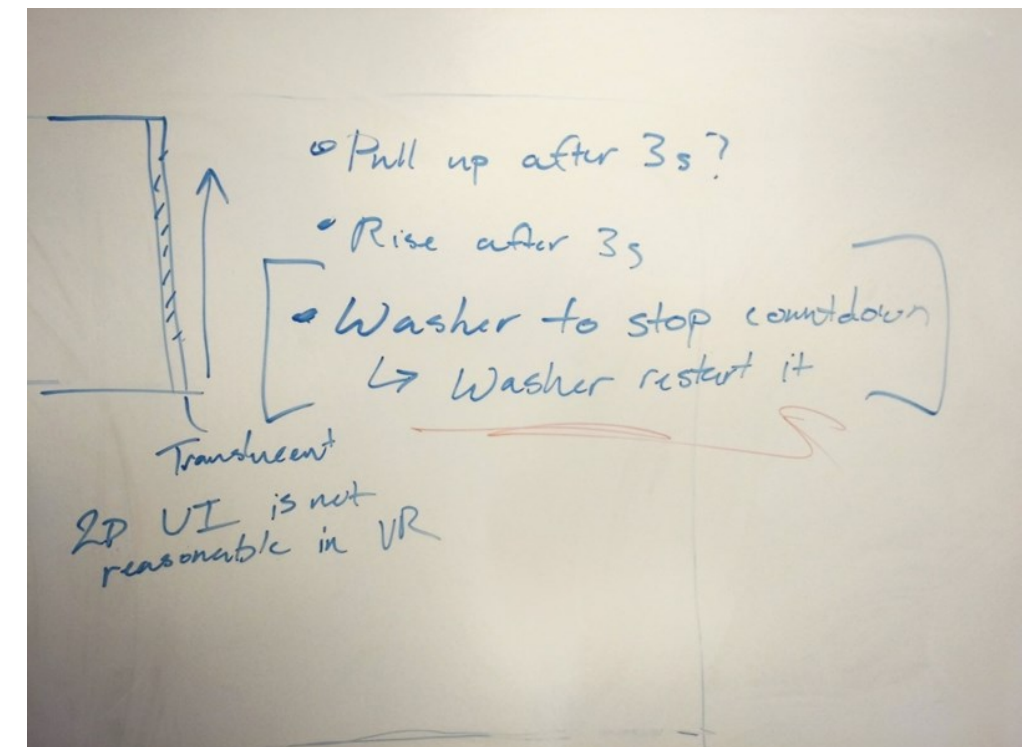 • Pull up after 3s?
• Rise after 3s
• Washer to stop countdown
↳ Washer restart it
Translucent
2D UI is not
reasonable in VR